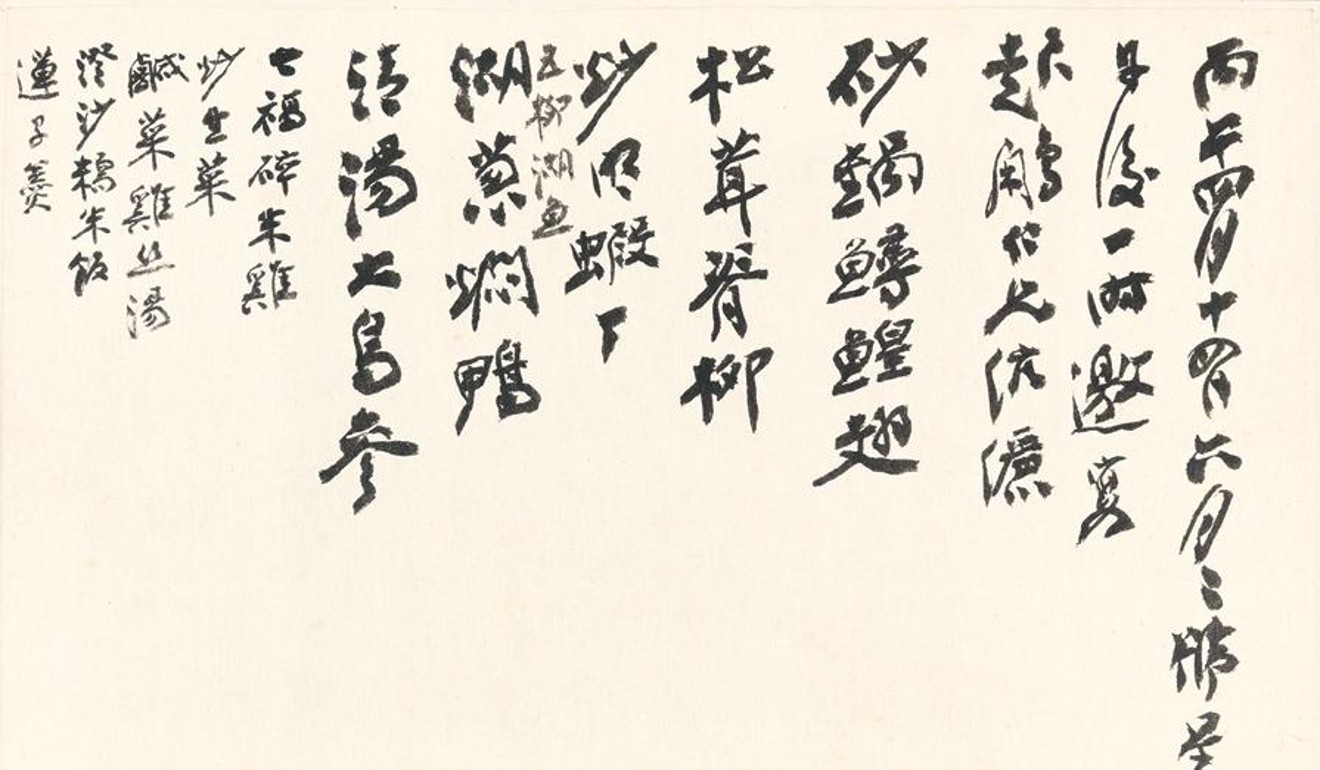 丙午四月十四日六月二號星
日後一時邀宴
砂鍋鱘鰉翅
松茸脊柳
炒明蝦丁
五柳湖魚
湖蔥燜鴨
清湯大烏參
七福碎米雞
炒生菜
鹹菜雞絲湯
澄沙糯米飯
蓮子羹